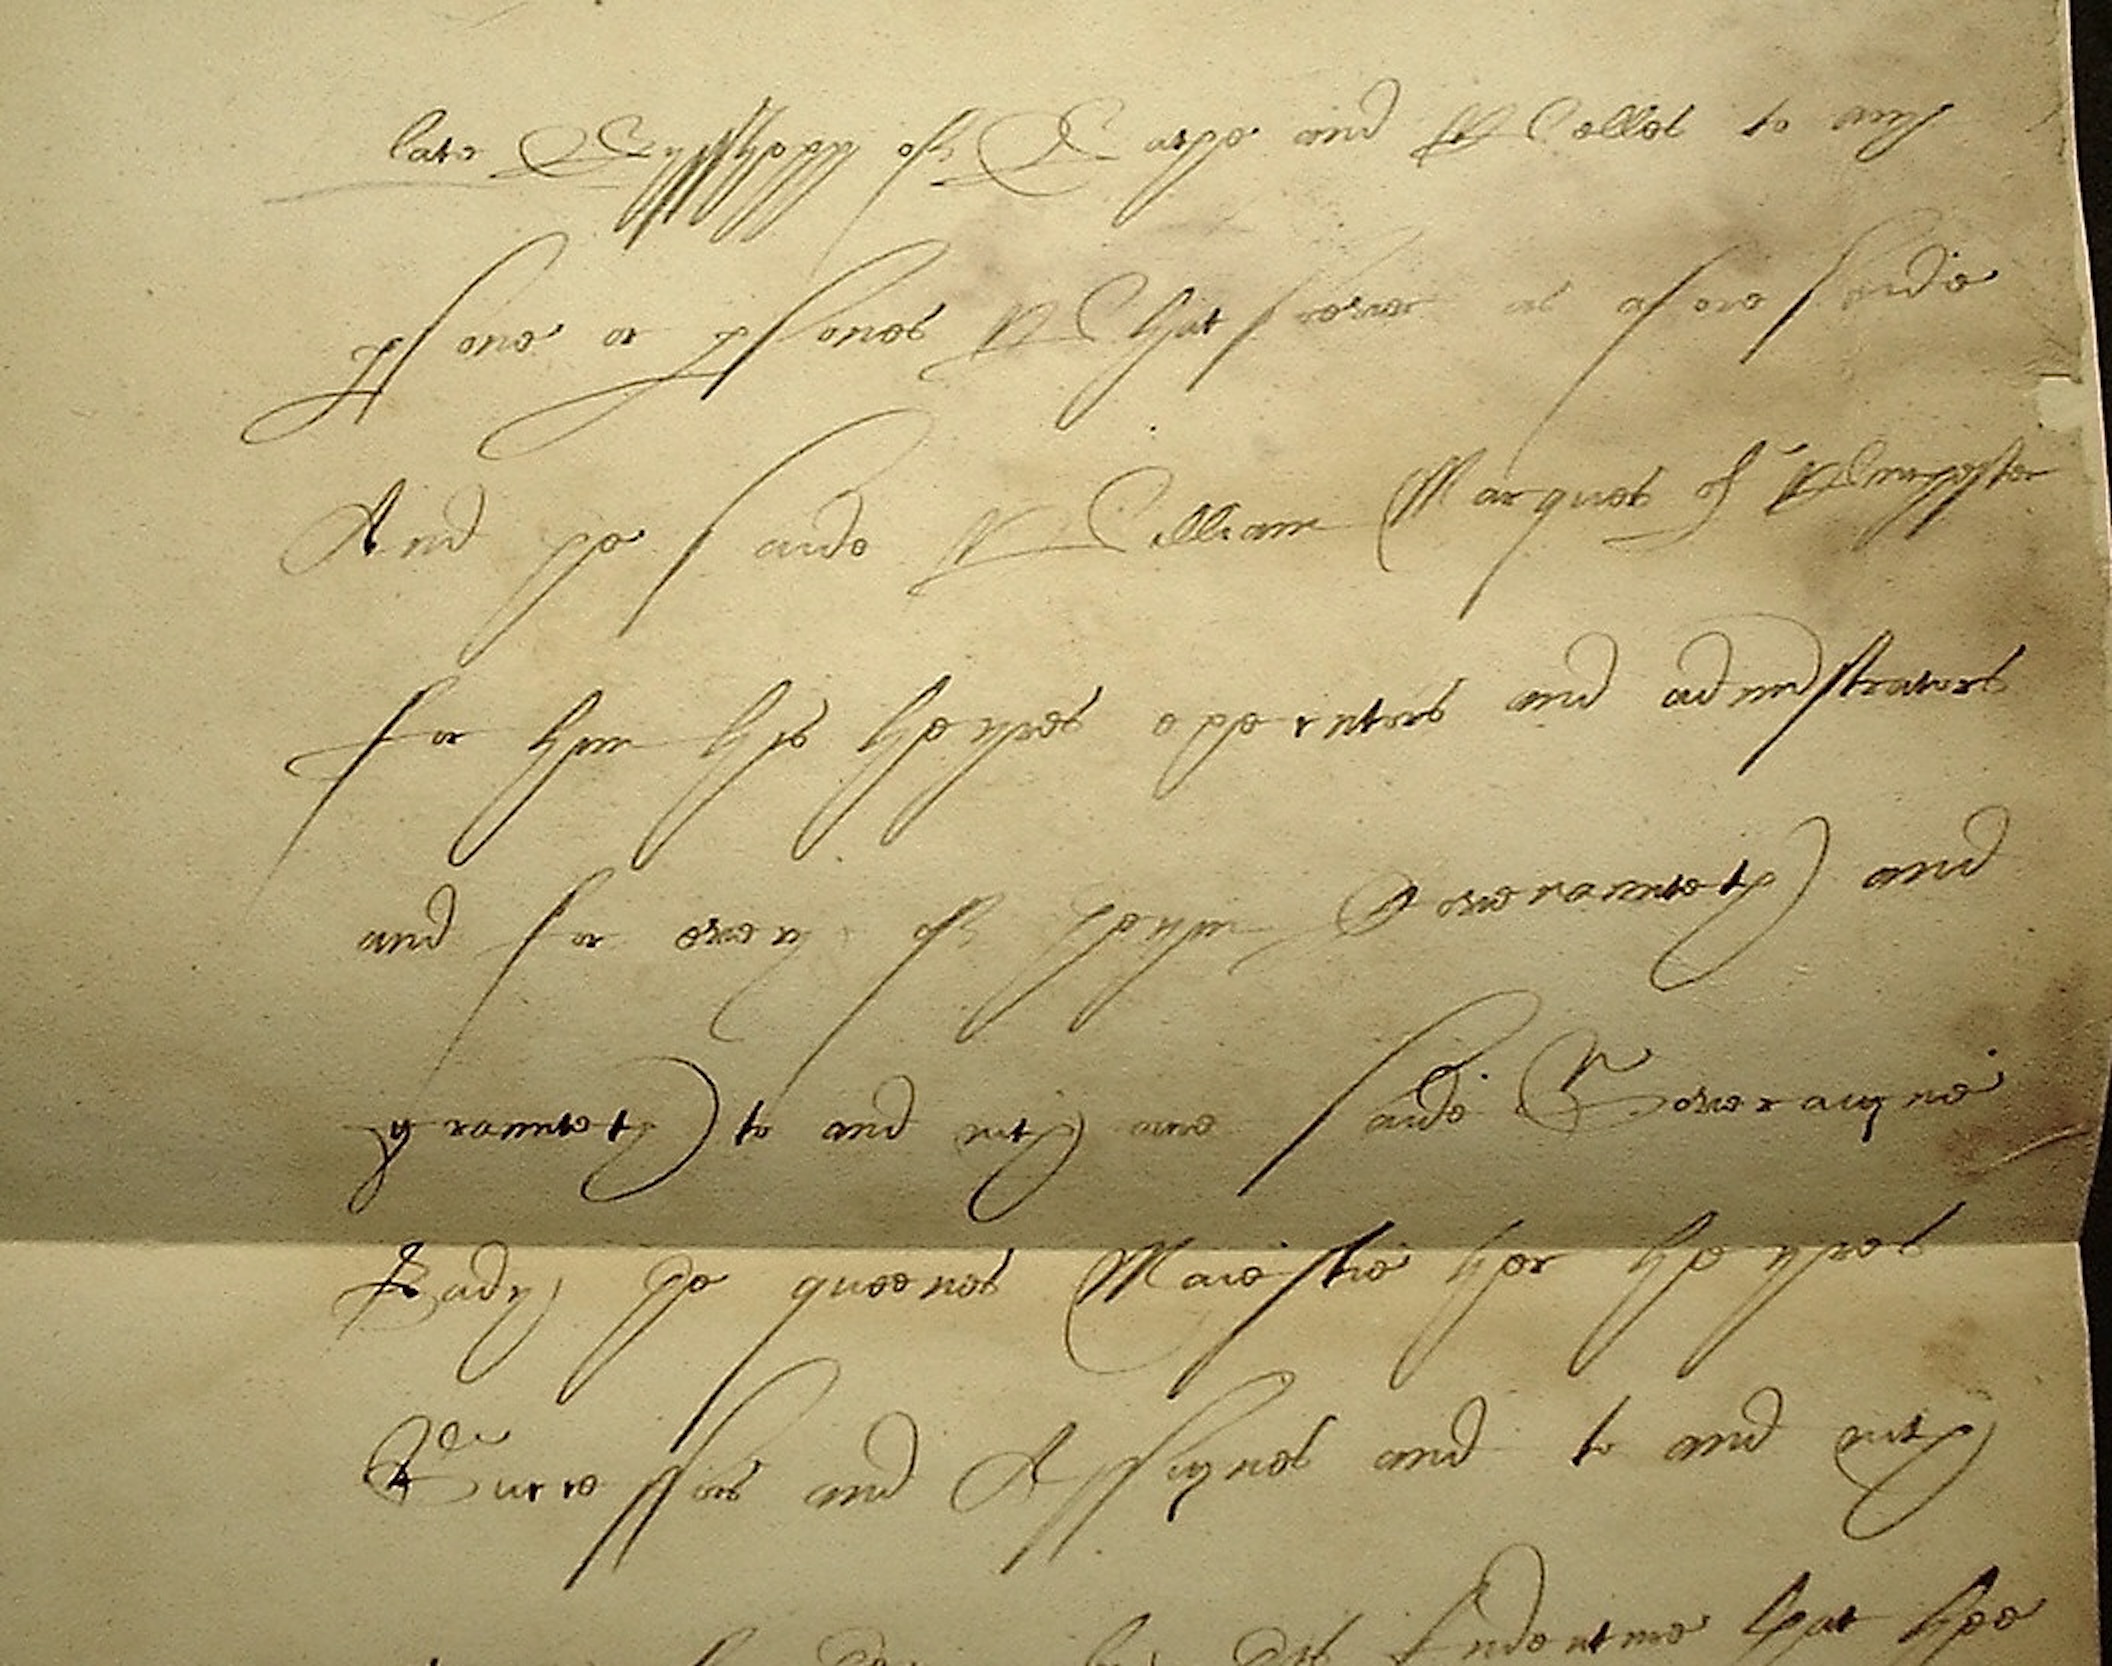 late Bysshopp of Bathe and Welles to any
psone or psones Whatsoever as aforesaide
And the saide William Marques of Wynchester
for hym his heyres executors and admstrators
and for every of theym Covenaunteth and
graunteth to and with oure saide Soveraigne
Lady the quenes Maiestie her heyres
Successors and Assignes and to and with
by this Indenture that the